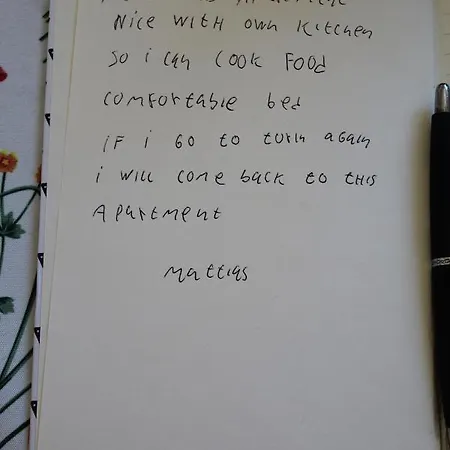 Nice WITH own KitcHen
So i can cook FooD
comFortable bed
iF i Go to turin again
i will come back to tHis
Apartment
Mattias